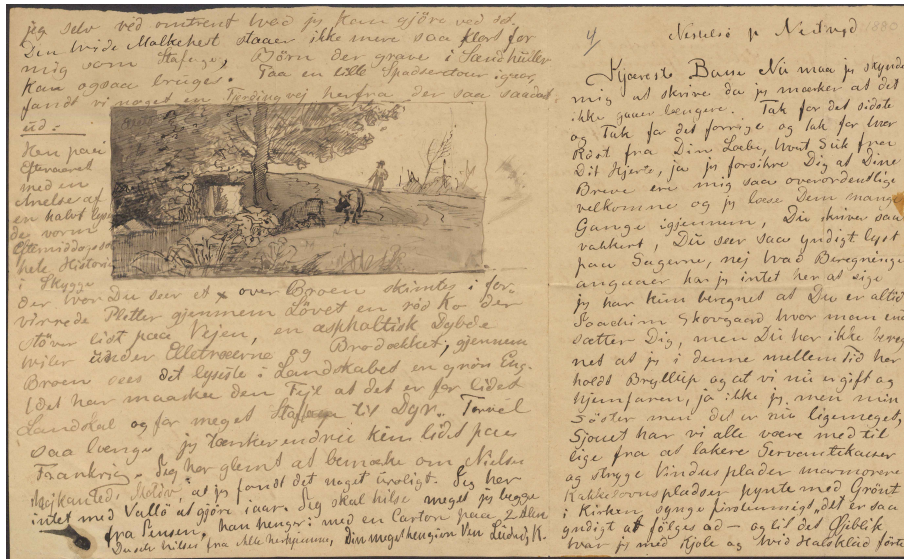 jeg selv véd omtrent hvad jeg kan gjöre ved det.
Den hvide Malkehest staaer ikke mere saa klart for
mig som Stafage, Börn der grave i Sandhuller
kan ogsaa bruges. Paa en lille Spadseretour igaar,
fandt vi noget en Fjerdingvej herfra der saa saadant
ud:
Hen paa
Efteraaret
med en
Anelse af
en halvt lysen
de varm
Eftermiddagssol
hele Historien
i Skygge
der hvor Du seer et x over Broen skimtes i for-
virrede Pletter gjennem Lövet en röd Ko der
stöver lidt paa Vejen, en asphaltisk Dybde
hviler under Elletræerne og Brodækket; gjennem
Broen sees det lyseste i Landskabet en grön Eng.
(det har maaskee den Fejl at det er for lidet
Landskab og for meget Stafage til Dyr. Farvel
saa længe jeg tænker endnu kun lidt paa
Frankrig. Jeg har glemt at bemærke om Niels
Skovgaard, at jeg fandt det noget uroligt. Jeg har
intet med Vallö at gjöre iaar. Jeg skal hilse meget fra begge
fra Jensen, han hænger med en Carton paa 2 Alen
Du skal hilses fra Alle herhjemme, Din meget hengivne Ven Ludvig K.
4/ Nestelsö pr Nestved
1880
Kjæreste Basse Nu maa jeg skynde
mig at skrive da jeg mærker at det
ikke gaaer længere. Tak for det sidste
og Tak for det forrige og tak for hver
Röst fra Din Læbe, hvert Suk fra
Dit Hjerte, ja jeg forsikre Dig at Dine
Breve ere mig saa overordentlige
velkomne og jeg læse Dem mange
Gange igjennem, Du skriver saa
vakkert, Du seer saa yndigt lyst
paa Sagerne, nej hvad Beregninge
angaaer har jeg intet her at sige
jeg har kun beregnet at Du er altid
Joachim Skovgaard hvor man end
sætter Dig, men Du har ikke bereg
net at jeg i denne mellemtid har
holdt Bryllup og at vi nu er gift og
hjemfaren, ja ikke jeg, men min
Söster men det er nu ligemeget,
Sjouet har vi alle være med til
lige fra at lakere Servantekasser
og stryge Vinduesplader marmorere
Kakkelovnspladser pynte med Grönt
i Kirken, synge firstemmigt, det er saa
yndigt at fölges ad – og til det Öjeblik
hvor jeg med Kjole og hvid Halsklud förte